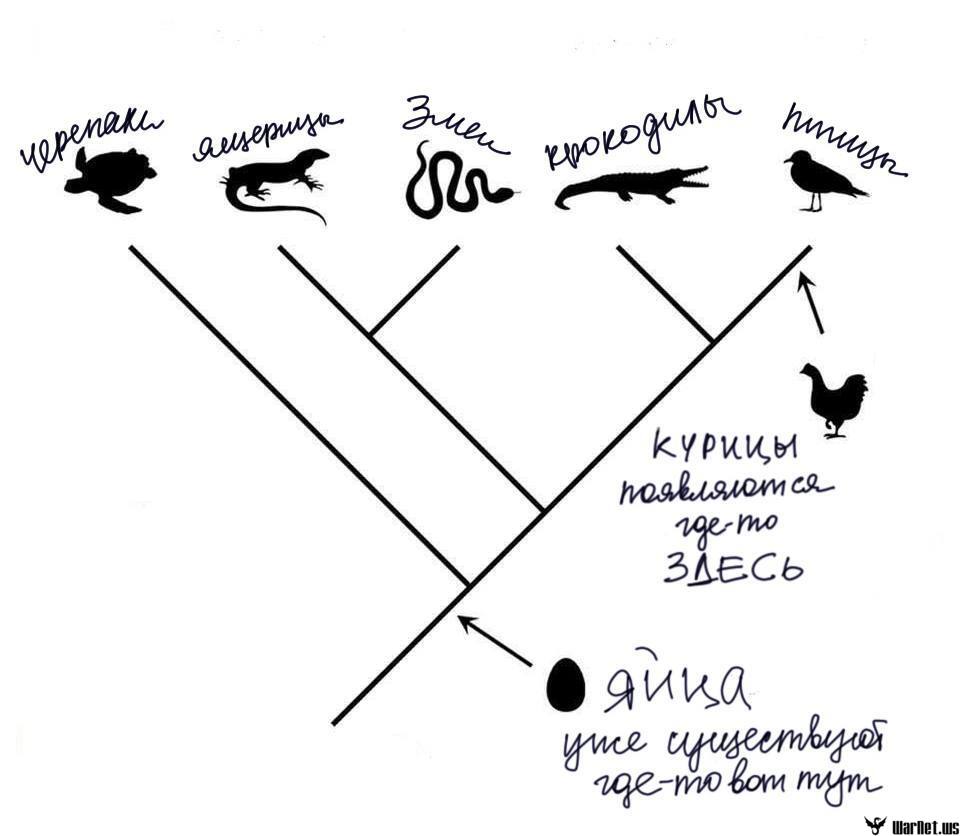 черепахи
ящерицы
Змеи
крокодилы
птицы
КУРИЦЫ
появляются
где-то
ЗДЕСЬ
ЯЙЦА
уже существуют
где-то вот тут
WarNet.ws